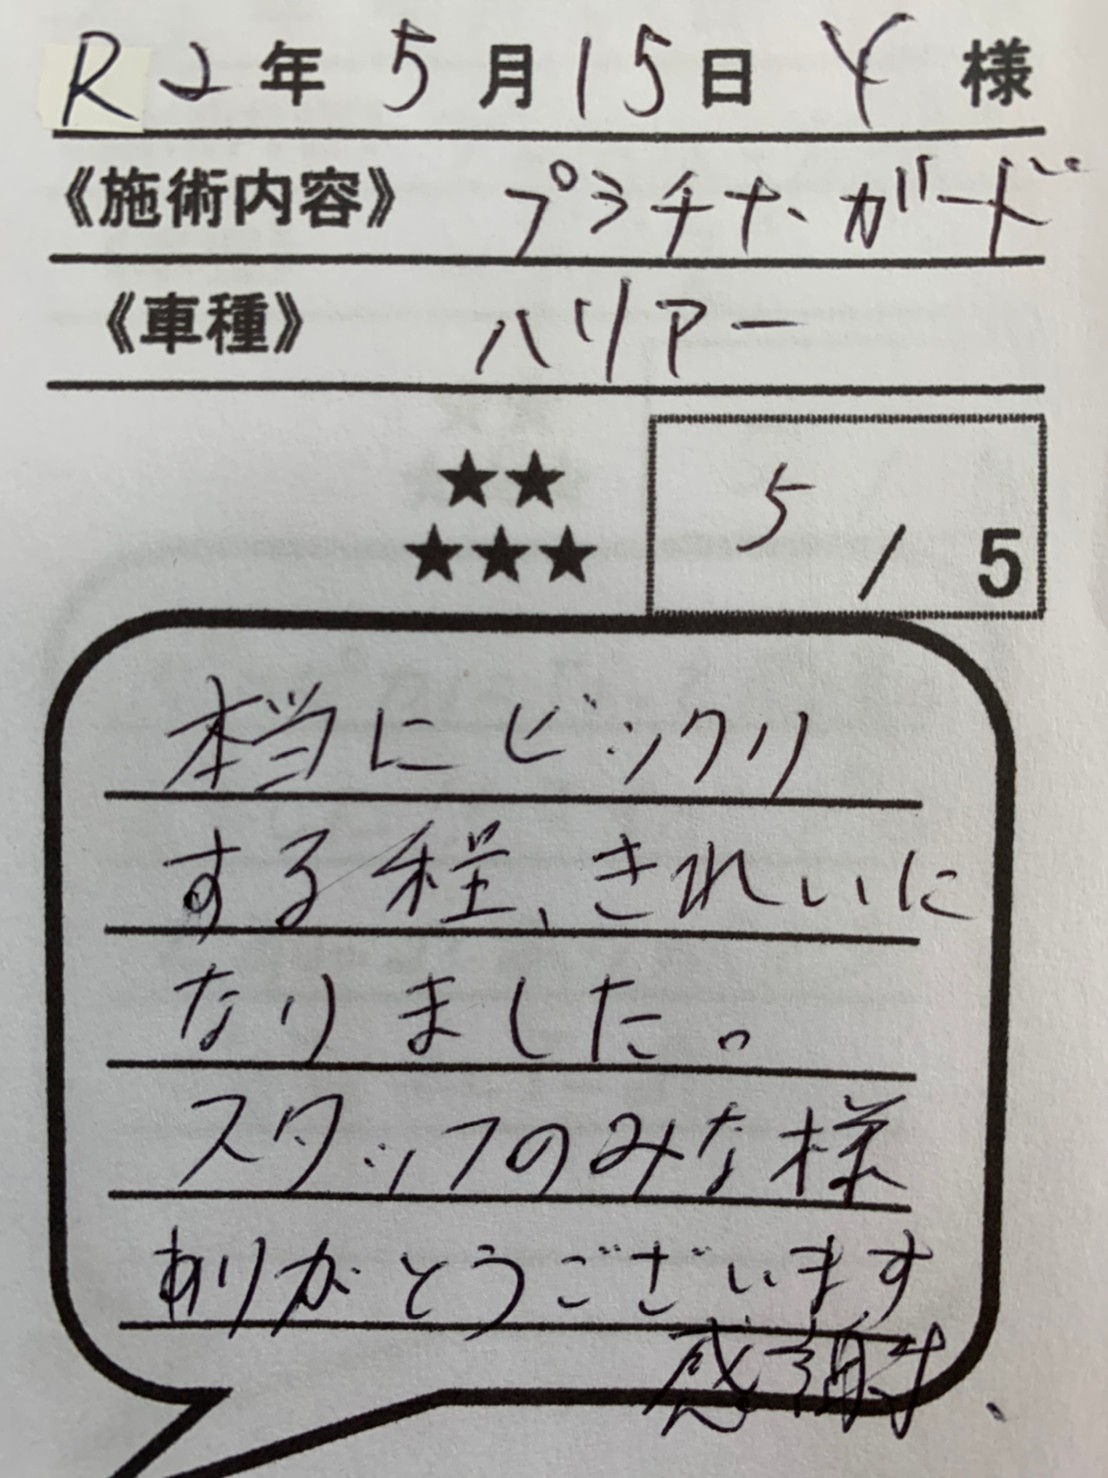 R2年 5月15日 Y 様
《施術内容》 プラチナ、ガード
《車種》 ハリアー
★★
★★★
5/5
本当にビックリ
する程、きれいに
なりました。
スタッフのみな様
ありがとうございます
感謝、